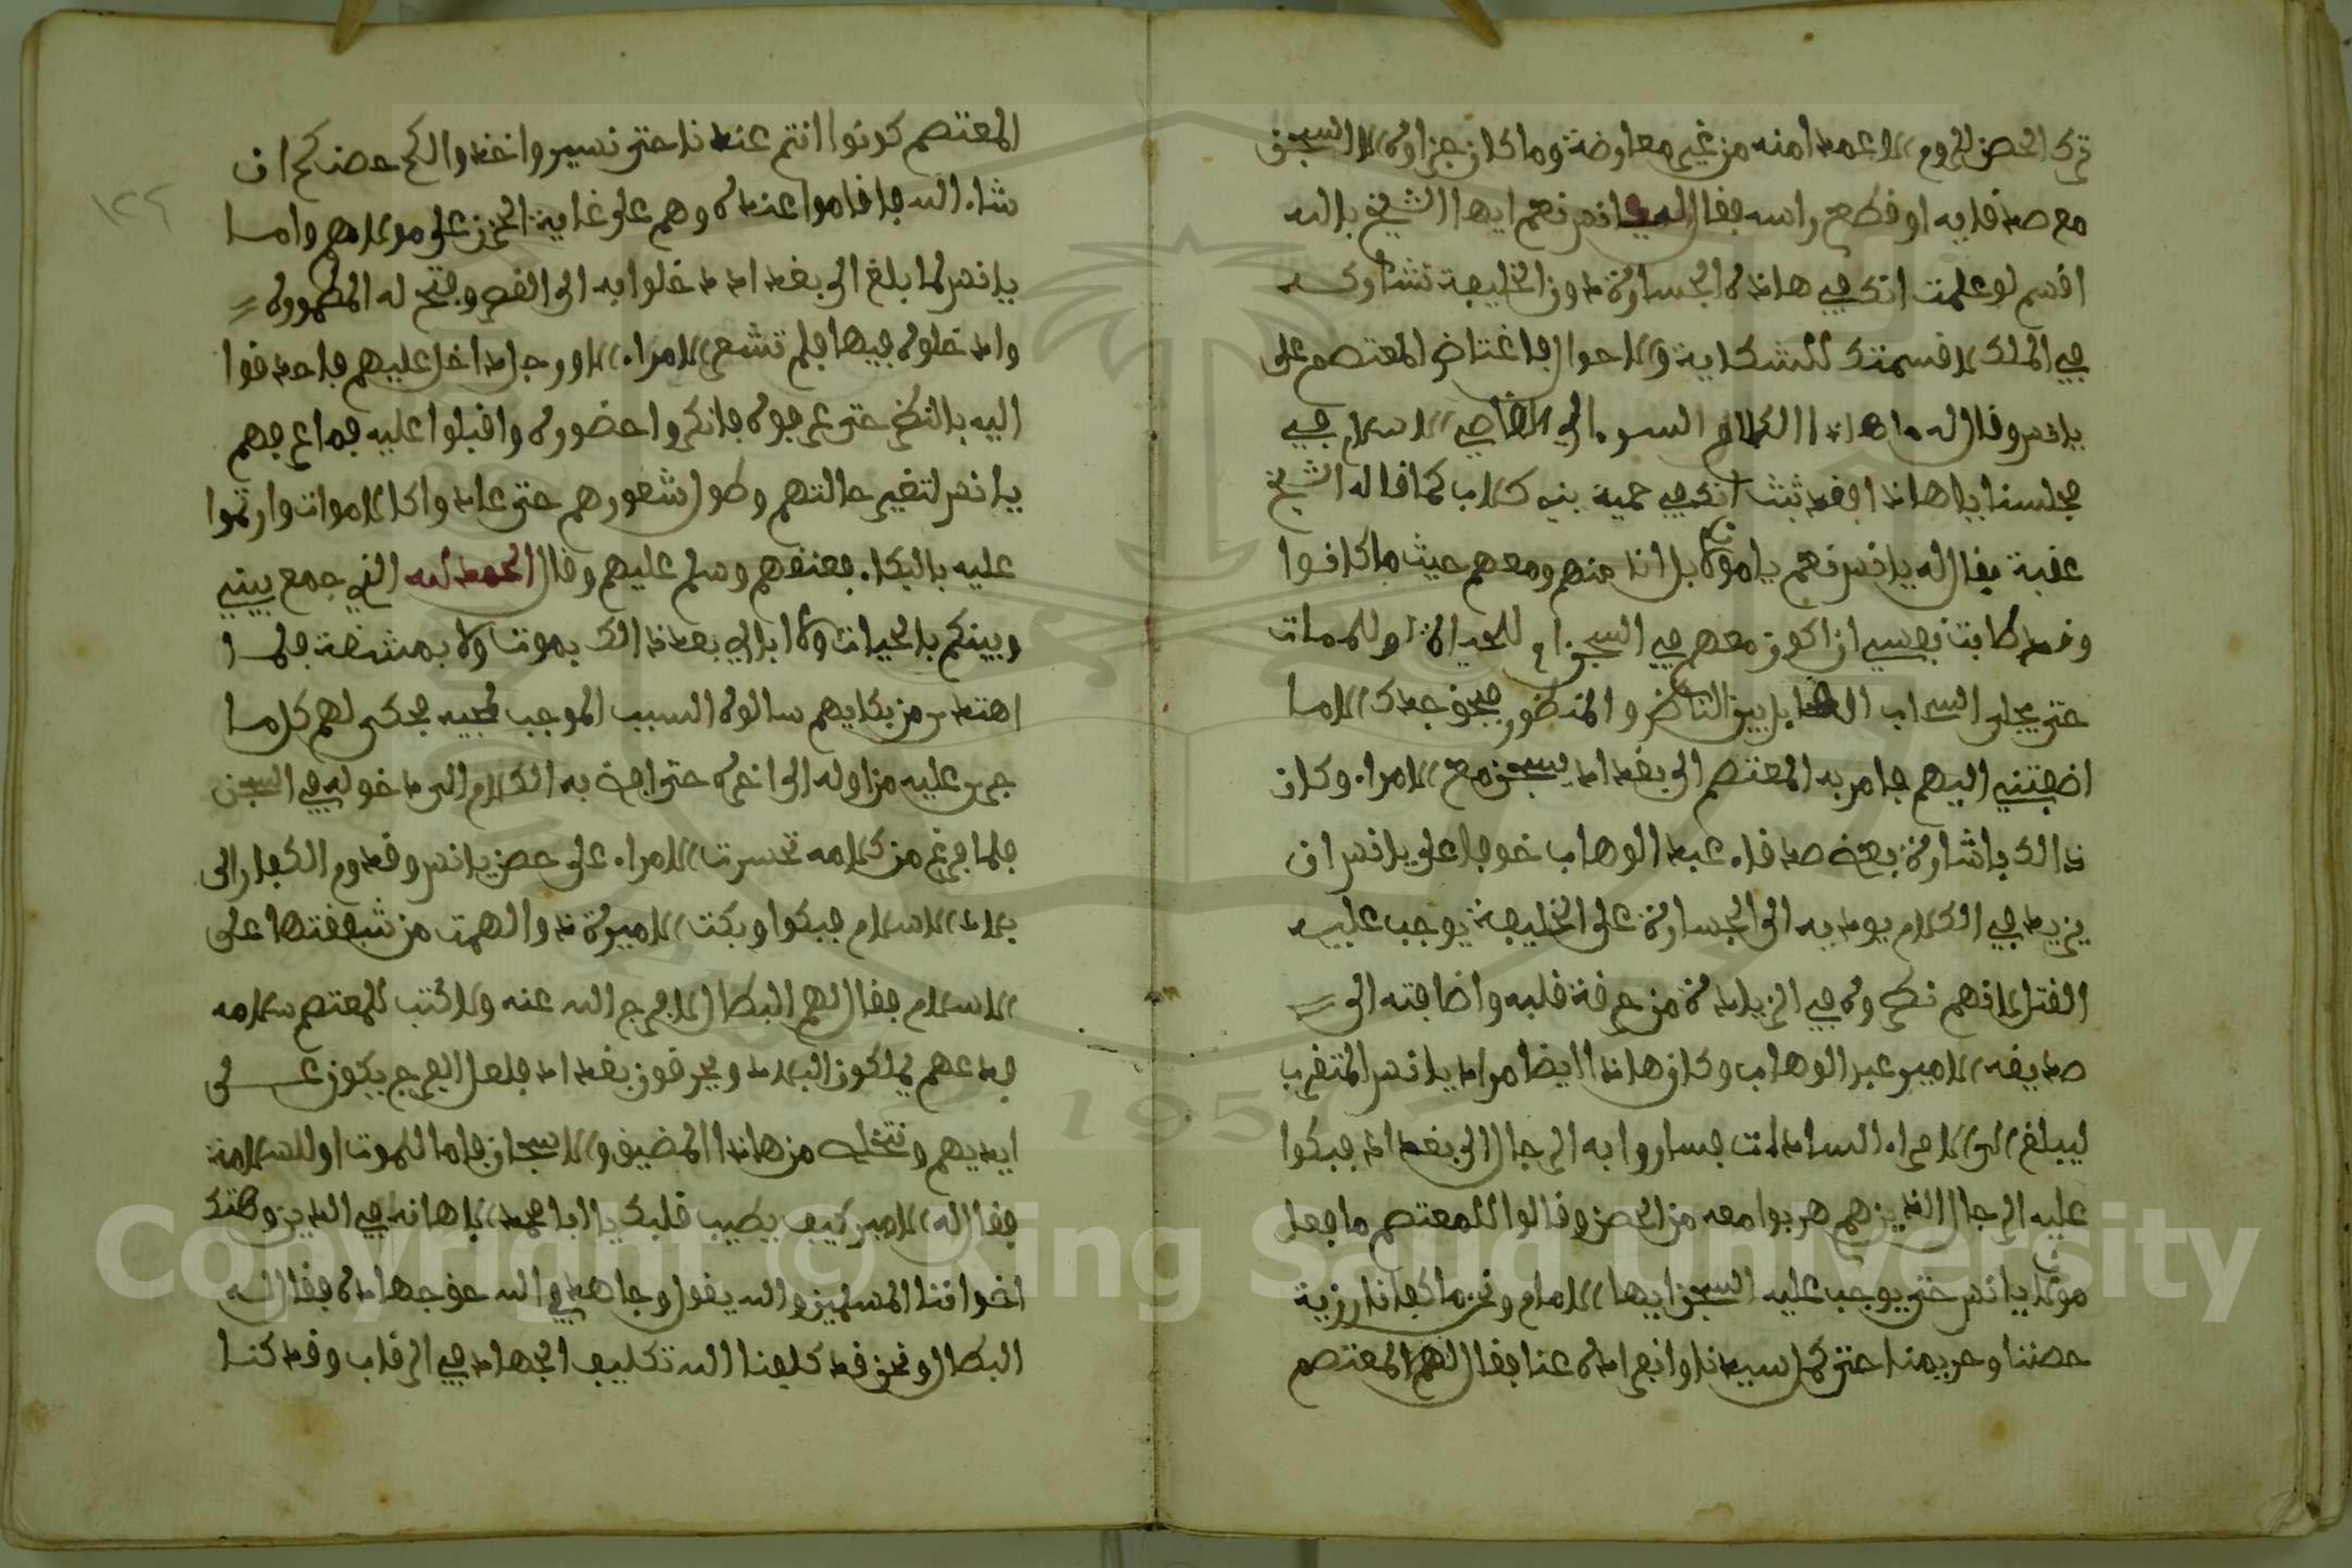 ترك الحصن للروم الا عمدا منه من غير معارضة وما كان جزاوه الا السجن
مع صدقايه او قطع راسه فقال له يانس نعم ايها الشيخ بالله
اقسم لو علمت انك في هاذه الجسارة دون الخليفة تشاركه
في الملك لا قسمتك للشكاية والاحوال فاغتاض المعتصم على
يانس وقال له ما هاذا الكلام السوء الى القاضي الاسلام في
مجلسنا يا هاذا فقد ثبت انك في حمية بني كلاب كما قال الشيخ
عقبة فقال له يانس نعم يا مولاي بل انا منهم ومعهم حيث ما كانوا
وقد طابت نفسي ان اكون معهم في السجن اما للحياة او للممات
حتى يجلى السراب الحايل بين الناضر والمنظور فبحق جدك الا ما
اضفتني اليهم فامر به المعتصم الى بغداد يسجن مع الامراء وكان
ذالك باشارة بعض صدقاء عبد الوهاب خوفا على يانس ان
يزيد في الكلام يوديه الى الجسارة على الخليفة يوجب عليه
القتل لانهم نظروه في الزيادة من حرقة قلبه واضافته الى
صديقه الامير عبد الوهاب وكان هاذا ايضا مراد يانس المتقرب
ليبلغ الى الامراء السادات فساروا به الرجال الى بغداد فبكوا
عليه الرجال الذين هم هربوا معه من الحصن وقالوا للمعتصم ما فعل
مولانا يانس حتى يوجب عليه السجن ايها الامام ونحن ما كفانا رزية
حصننا وحريمنا حتى كمل سيدنا وانفراده عنا فقال لهم المعتصم
المعتصم كونوا انتم عندنا حتى نسير واخذوا لكم حصنكم ان
شاء الله فاقاموا عنده وهم على غاية الحزن على مولاهم واما
يانس لما بلغ الى بغداد دخلوا به الى القصر وفتح له المطمورة
وادخلوه فيها فلم تشعر الامراء الا ورجل داخل عليهم فاحدقوا
اليه بالنظر حتى عرفوه فانكروا حضوره واقبلوا عليه فما عرفهم
يانس لتغير حالتهم وطول شعورهم حتى عادوا كالاموات وارتموا
عليه بالبكاء فعنقهم وسلم عليهم وقال الحمد لله الذي جمع بيني
وبينكم بالحيات ولا ابالي بعد ذالك بموت ولا بمشنقة فلما
اهتدى من بكايهم سالوه السبب الموجب لمجيه فحكى لهم كل ما
جرى عليه من اوله الى اخره حتى افضى به الكلام الى دخوله في السجن
فلما فرغ من كلامه تحسرت الامراء على حصن يانس وقدوم الكفار الى
بلاد الاسلام فبكوا وبكت الاميرة ذو الهمت من شفقتها على
الاسلام فقال لهم البطال لا فرج الله عنه ولا كتب للمعتصم سلامه
فدعهم يملكون البلاد ويحرقون بغداد فلعل الفرج يكون على
ايديهم ونتخلص من هاذا المضيق والاسجان فاما للموت او للسلامة
فقال له الامير كيف يطيب قلبك يا ابا محمد باهانة في الدين وهتك
اخواننا المسلمين والله يقول وجاهدوا في الله حق جهاده فقال له
البطال ونحن قد كلفنا الله تكليف الجهاد في الرقاب وقد كنا
١٢٢
Copyright © King Saud University
1957